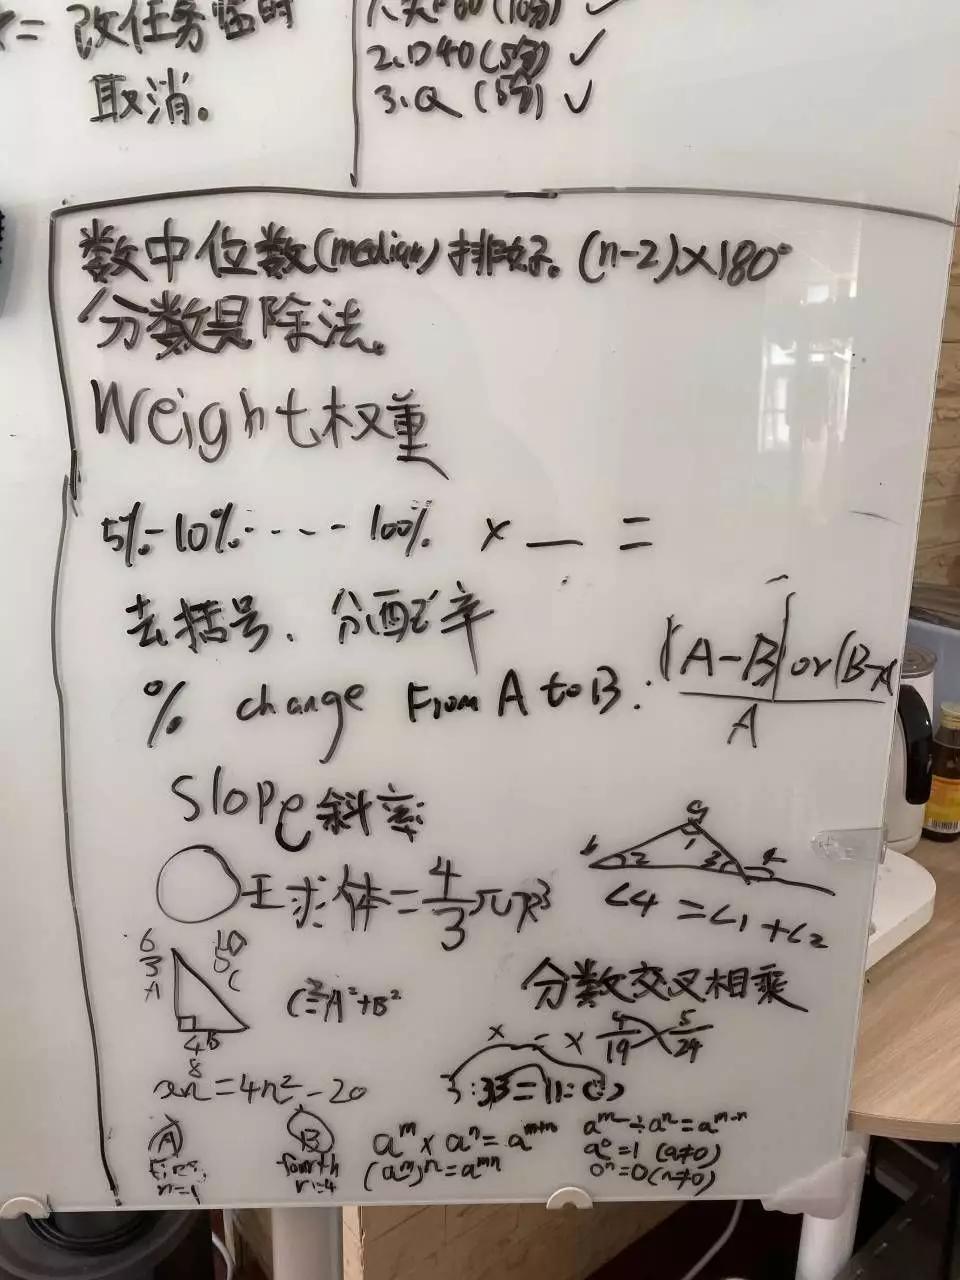 改任务临时
取消。
2.D40(5分) ✓
3.Q (5分) ✓
数中位数(median)排好. (n-2)×180°
分数是除法.
Weight权重
5%-10%····- 100% × — =
去括号、分配率
% change From A to B: |A-B| or (B-A / A
Slope斜率
王求体=4/3πR³
1 2 3
∠4 =∠1+∠2
6 10
3 5
A C
C²=A²+B²
4 B
8
分数交叉相乘
x = × 4/19 5/24
xn=4n²-20
3:33=11:( )
A
First
n=1
B
fourth
n=4
aᵐ×aⁿ=aᵐ⁺ⁿ
(aᵐ)ⁿ=aᵐⁿ
aᵐ÷aⁿ=aᵐ⁻ⁿ
a⁰=1 (a≠0)
0ⁿ=0(n≠0)